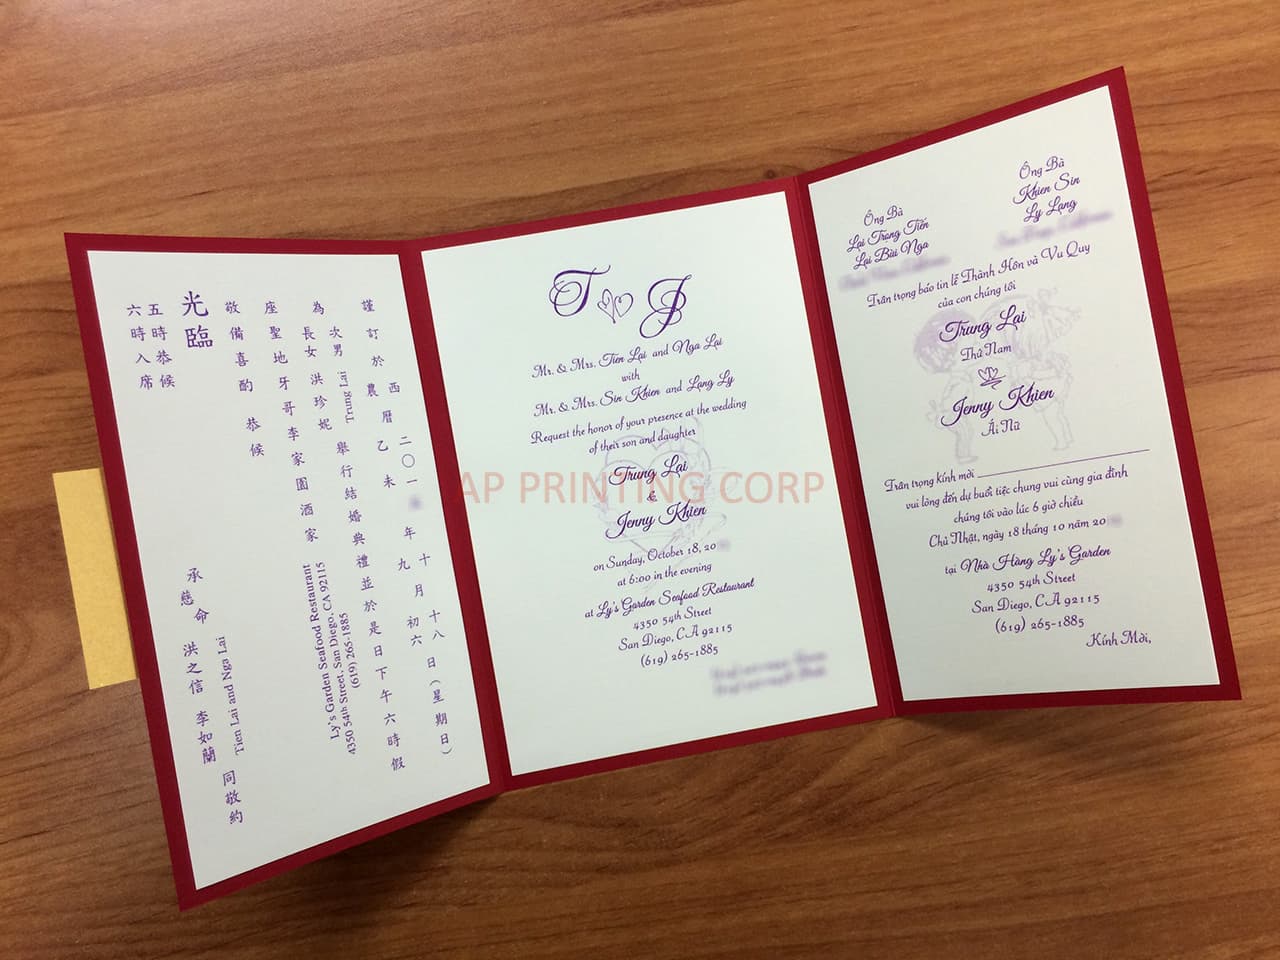 謹訂於
西曆二〇一 年十月十八日（星期日）
農曆乙未年九月初六
為
次男 Trung Lai
長女 洪珍妮
舉行結婚典禮並於是日下午六時假
座聖地牙哥李家園酒家
Ly's Garden Seafood Restaurant
4350 54th Street, San Diego, CA 92115
(619) 265-1885
敬備喜酌 恭候
光臨
承慈命
洪之信
李如蘭
Tien Lai and Nga Lai
同敬約
五時恭候
六時入席
T J
Mr. & Mrs. Tien Lai and Nga Lai
with
Mr. & Mrs. Sin Khien and Lang Ly
Request the honor of your presence at the wedding
of their son and daughter
Trung Lai
&
Jenny Khien
on Sunday, October 18, 20
at 6:00 in the evening
at Ly's Garden Seafood Restaurant
4350 54th Street
San Diego, CA 92115
(619) 265-1885
Ông Bà
Lại Trọng Tiến
Lại Bùi Nga
Ông Bà
Khien Sin
Ly Lang
Trân trọng báo tin lễ Thành Hôn và Vu Quy
của con chúng tôi
Trung Lai
Thứ Nam
Jenny Khien
Ái Nữ
Trân trọng kính mời
vui lòng đến dự buổi tiệc chung vui cùng gia đình
chúng tôi vào lúc 6 giờ chiều
Chủ Nhật, ngày 18 tháng 10 năm 20
tại Nhà Hàng Ly's Garden
4350 54th Street
San Diego, CA 92115
(619) 265-1885
Kính Mời,
AP PRINTING CORP